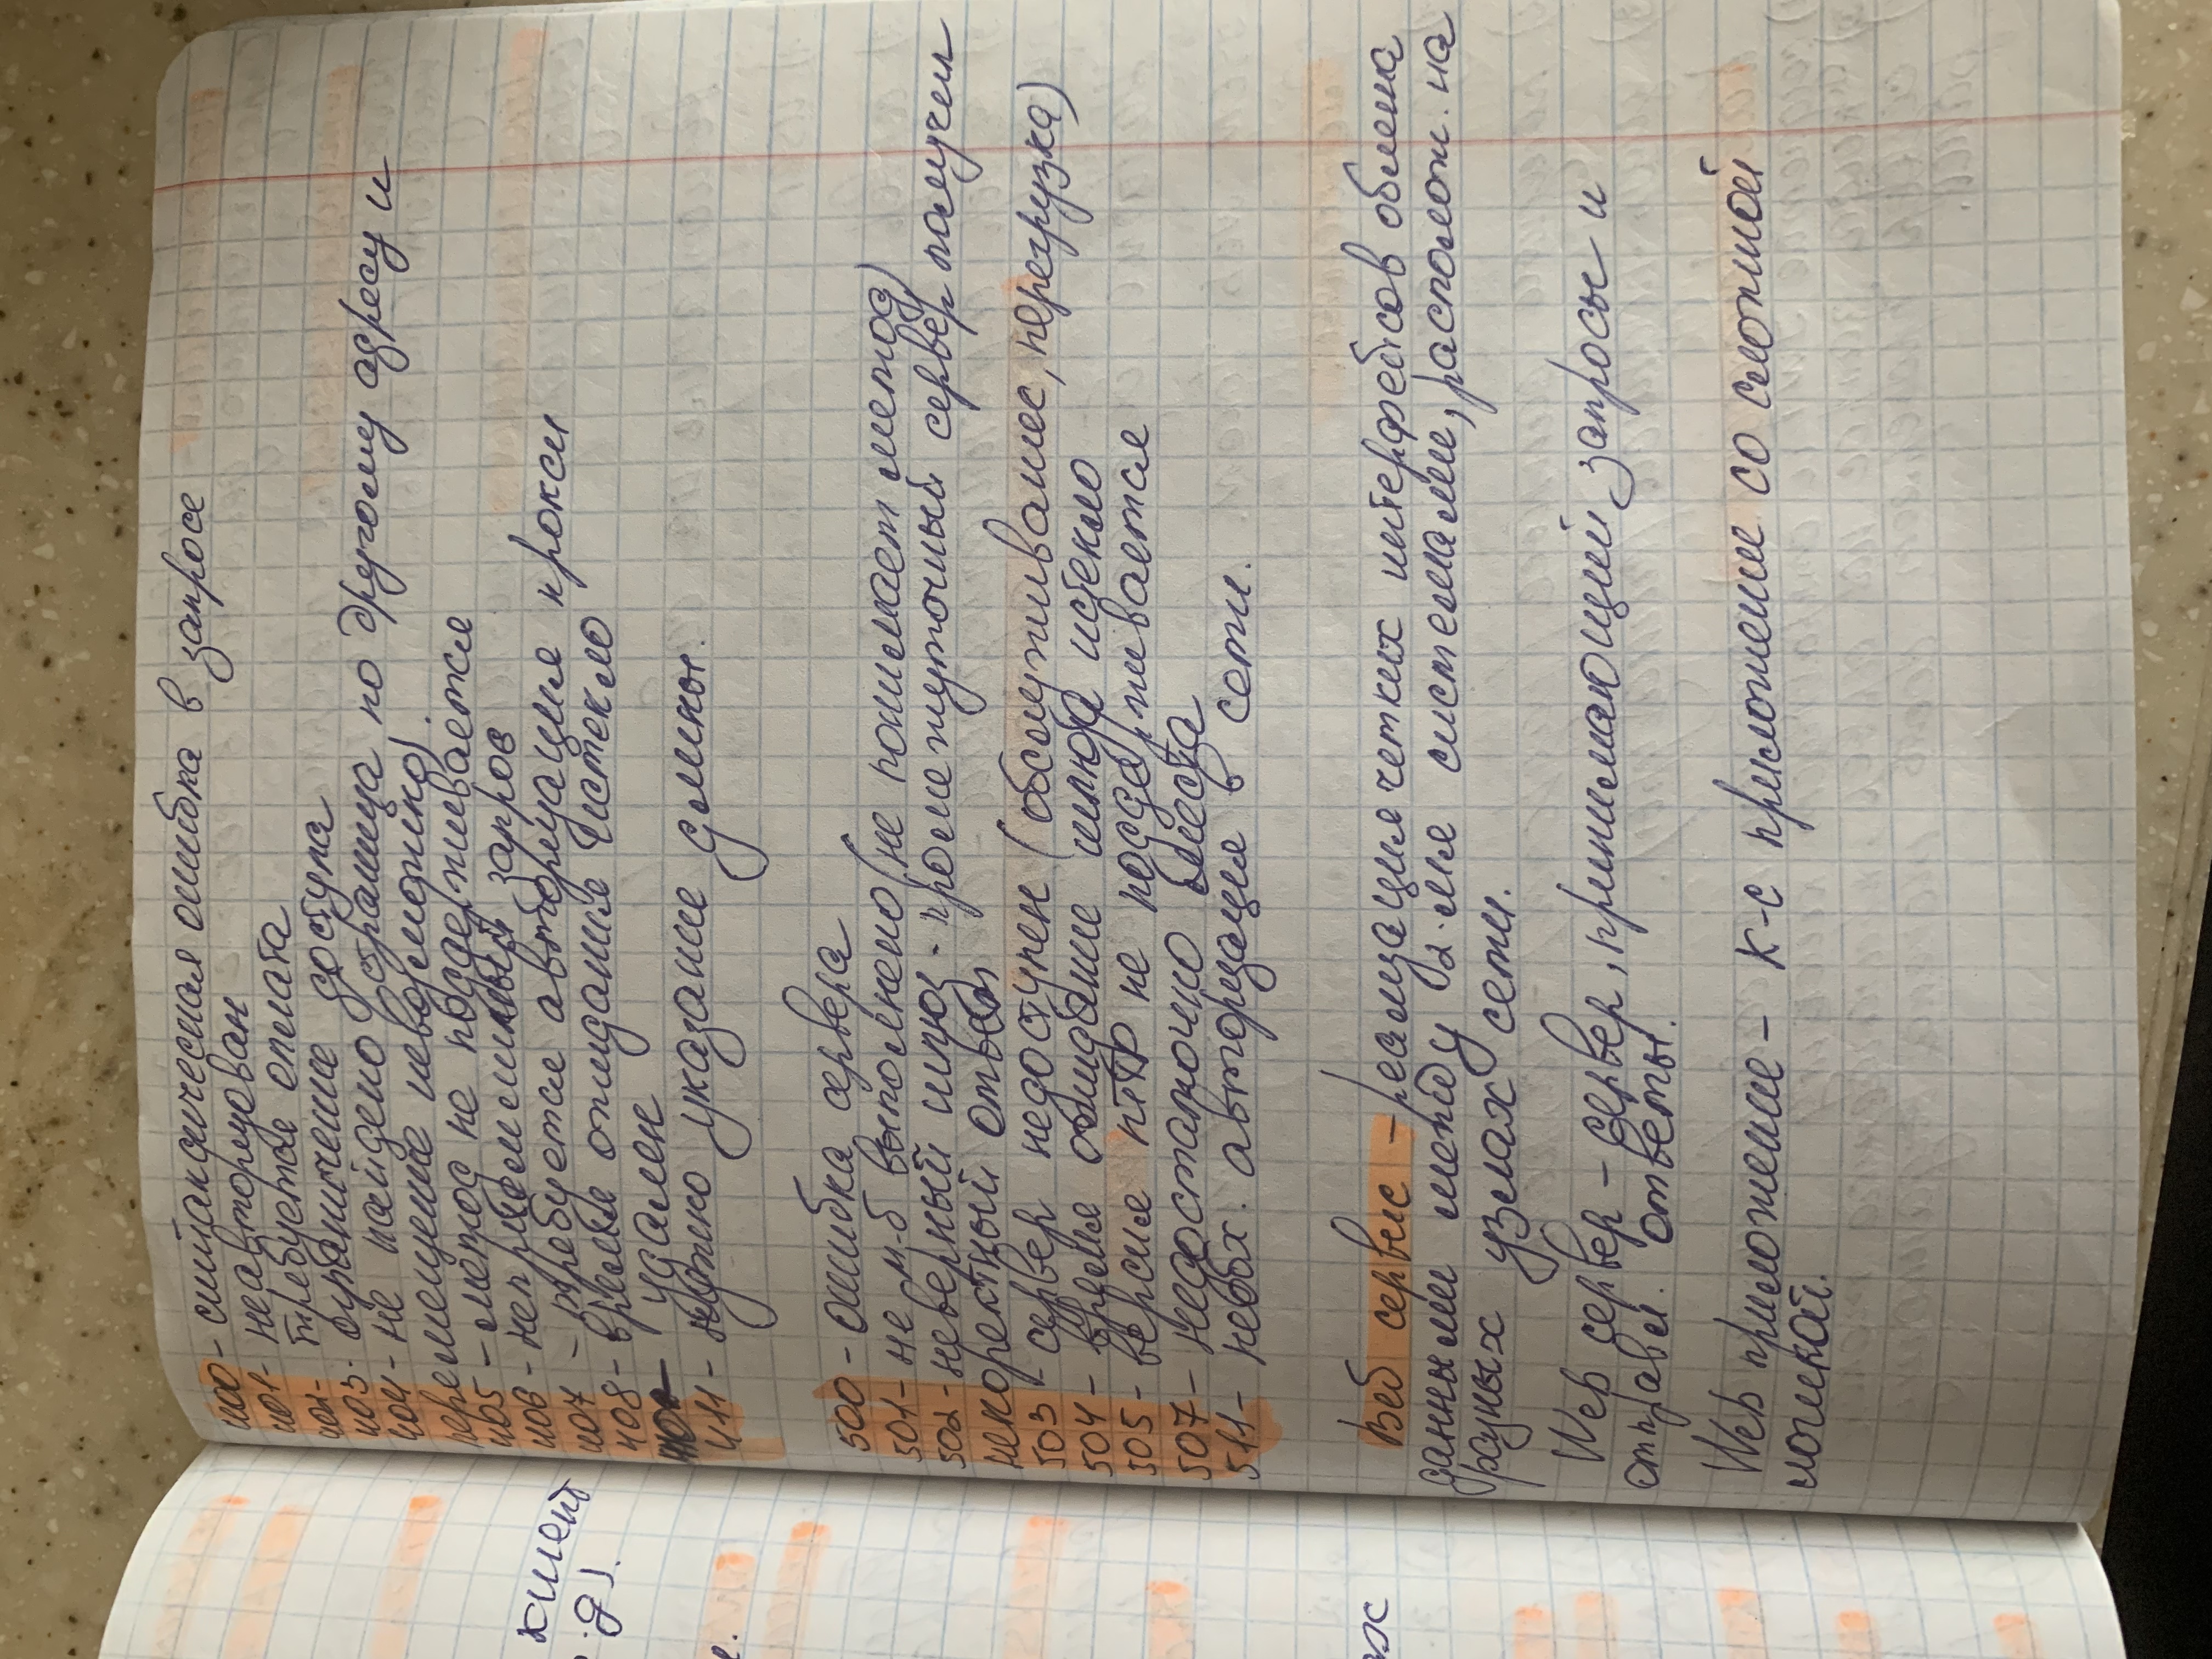 400 - синтаксическая ошибка в запросе
401 - неавторизован
402 - требуется оплата
403 - ограничение доступа
404 - не найдено (страница по другому адресу и
перемещение невозможно).
405 - метод не поддерживается
406 - неприемлимый запрос
407 - требуется авторизация прокси
408 - время ожидания истекло
410 - удален
411 - нужно указание длины.
500 - ошибка сервера
501 - не м.б выполнено (не понимает метод)
502 - неверный шлюз - промежуточный сервер получил
некоректный ответ
503 - сервер недоступен (обслуживание, перегрузка)
504 - время ожидание шлюза истекло
505 - версия HTTP не поддерживается
507 - недостаточно места
511 - необх. авторизация в сети.
Веб сервис - реализация четких интерфейсов обмена
данными между 2-мя системами, располож. на
разных узлах сети.
Web сервер - сервер, принимающий запросы и
отправл. ответы.
Web приложение - к-с приложение со сложной
логикой.